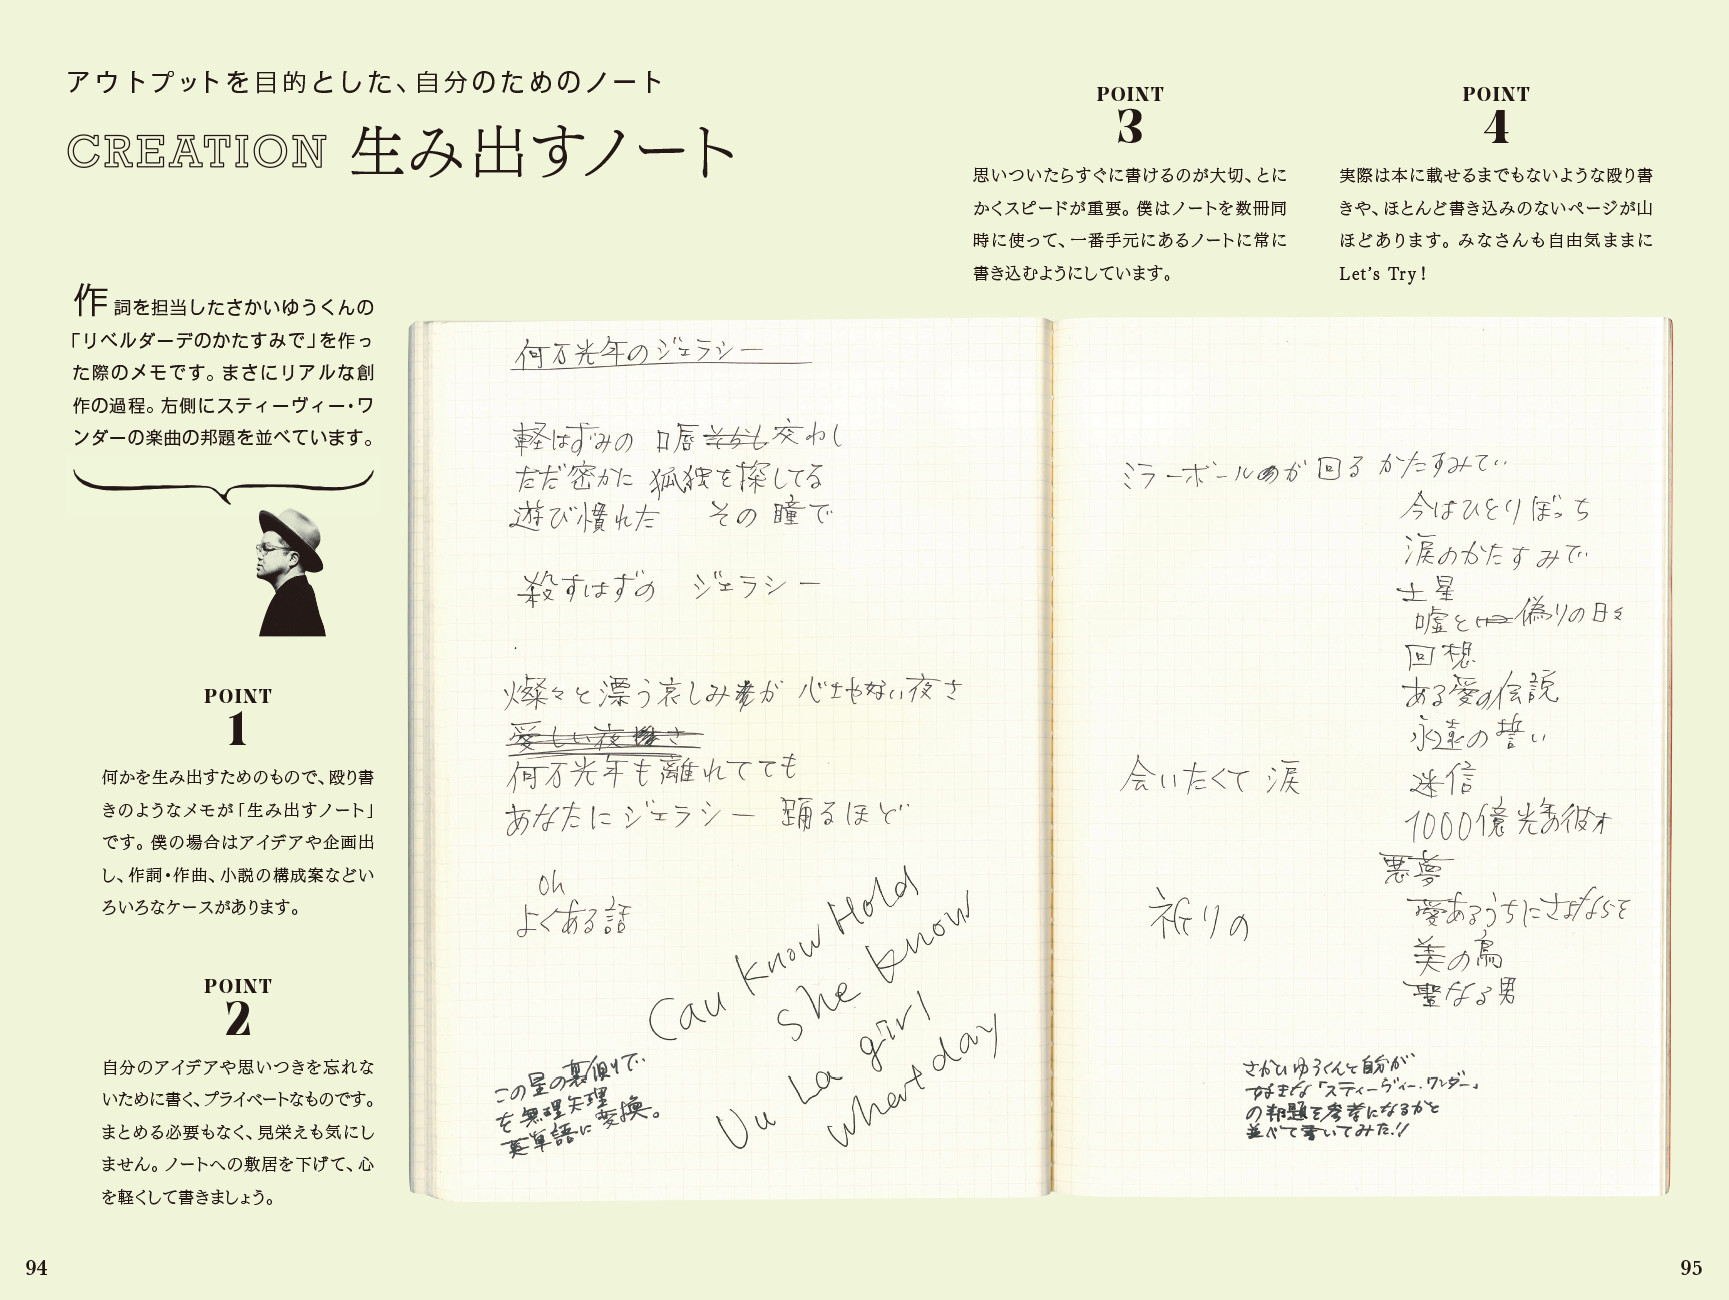 アウトプットを目的とした、自分のためのノート
CREATION 生み出すノート
作詞を担当したさかいゆうくんの
「リベルダーデのかたすみで」を作っ
た際のメモです。まさにリアルな創
作の過程。左側にスティーヴィー・ワ
ンダーの楽曲の邦題を並べています。
POINT
1
何かを生み出すためのもので、殴り書
きのようなメモが「生み出すノート」
です。僕の場合はアイデアや企画出
し、作詞・作曲、小説の構成案などい
ろいろなケースがあります。
POINT
2
自分のアイデアや思いつきを忘れな
いために書く、プライベートなものです。
まとめる必要もなく、見栄えも気にし
ません。ノートへの敷居を下げて、心
を軽くして書きましょう。
POINT
3
思いついたらすぐに書けるのが大切、とに
かくスピードが重要。僕はノートを数冊同
時に使って、一番手元にあるノートに常に
書き込むようにしています。
POINT
4
実際は本に載せるまでもないような殴り書
きや、ほとんど書き込みのないページが山
ほどあります。みなさんも自由気ままに
Let's Try!
何万光年のジェラシー
軽はずみの 口唇 交わし
ただ密かた 孤独を探してる
遊び慣れた その瞳で
殺すはずの ジェラシー
燦々と漂う哀しみが 心地やない夜さ
愛しい夜さ
何万光年も離れてても
あなたにジェラシー 踊るほど
oh
よくある話
Cau know Hold
she know
Uu La girl
whert day
この星の裏側で
を無理矢理
英単語に変換。
ミラーボールが回る かたすみで
今はひとりぼっち
涙のかたすみで
土星
嘘と偽りの日々
回想
ある愛の伝説
永遠の誓い
会いたくて 涙
迷信
1000億光年の彼方
悪夢
祈りの
愛あるうちにさよならを
美の鳥
聖なる男
さかいゆうくんと自分が
好きな「スティーヴィー・ワンダー」
の邦題を参考になるかと
並べて書いてみた!!
94
95